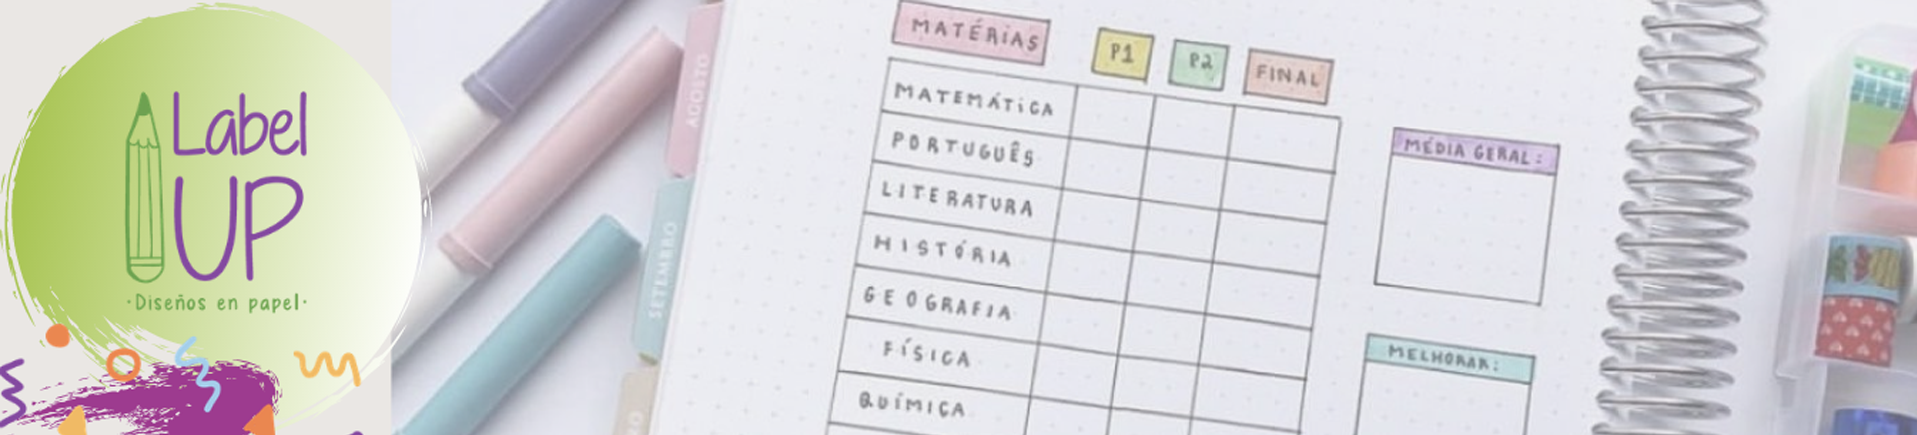 Label
UP
·Diseños en papel·
AGOSTO
SETEMBRO
MATÉRIAS P1 P2 FINAL
MATEMÁTICA
PORTUGUÊS
LITERATURA
HISTÓRIA
GEOGRAFIA
FÍSICA
QUÍMICA
MÉDIA GERAL:
MELHORAR: